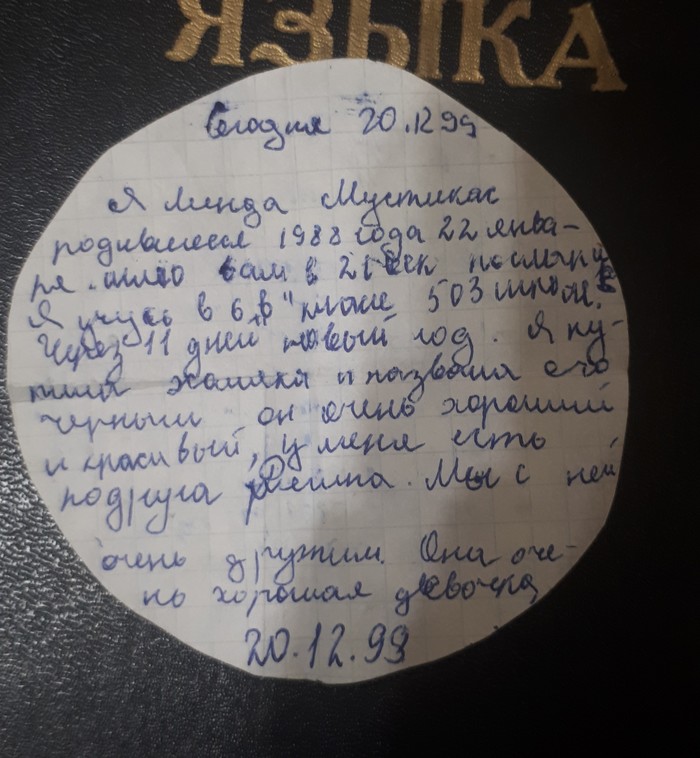 ЯЗЫКА
Сегодня 20.12.99
Я Линда Мустикас
родившееся 1988 года 22 янва-
ря. шлю вам в 21 век послание
Я учусь в 6 "в" класе 503 школе.
Через 11 дней новый год. Я ку-
пила хомяка и назвала его
черныш он очень хороший
и красивый, у меня есть
подруга
Мы с ней
очень дружим. Она оче-
нь хорошая девочка
20.12.99